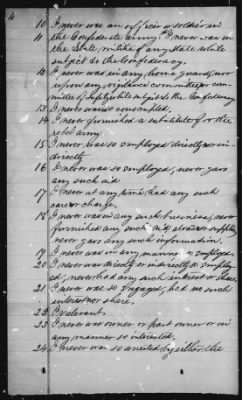 10 I never was an officer or soldier in
the Confederate army.
11 I never was in
the State militia of any State while
subject to the Confederacy.
12 I never was in any home guard, nor
upon any vigilance committee or com
mittee of safety while subject to the Confederacy
13 I never was conscripted.
14 I never furnished a substitute for the
rebel army.
15 I never was so employed directly or in-
directly
16 I never was so employed, never gave
any such aid.
17 I never at any time had any such
care or charge.
18 I never was in any such business, never
furnished any such aid, stores or supplies
never gave any such information.
19 I never was in any manner so employed.
20 I never was directly or indirectly so employ
ed, never had any such interest or share.
21 I never was so engaged, had no such
interest nor share.
22 Irrelevant.
23 I never was owner or part owner or in
any manner so interested.
24 I never was so arrested by either the